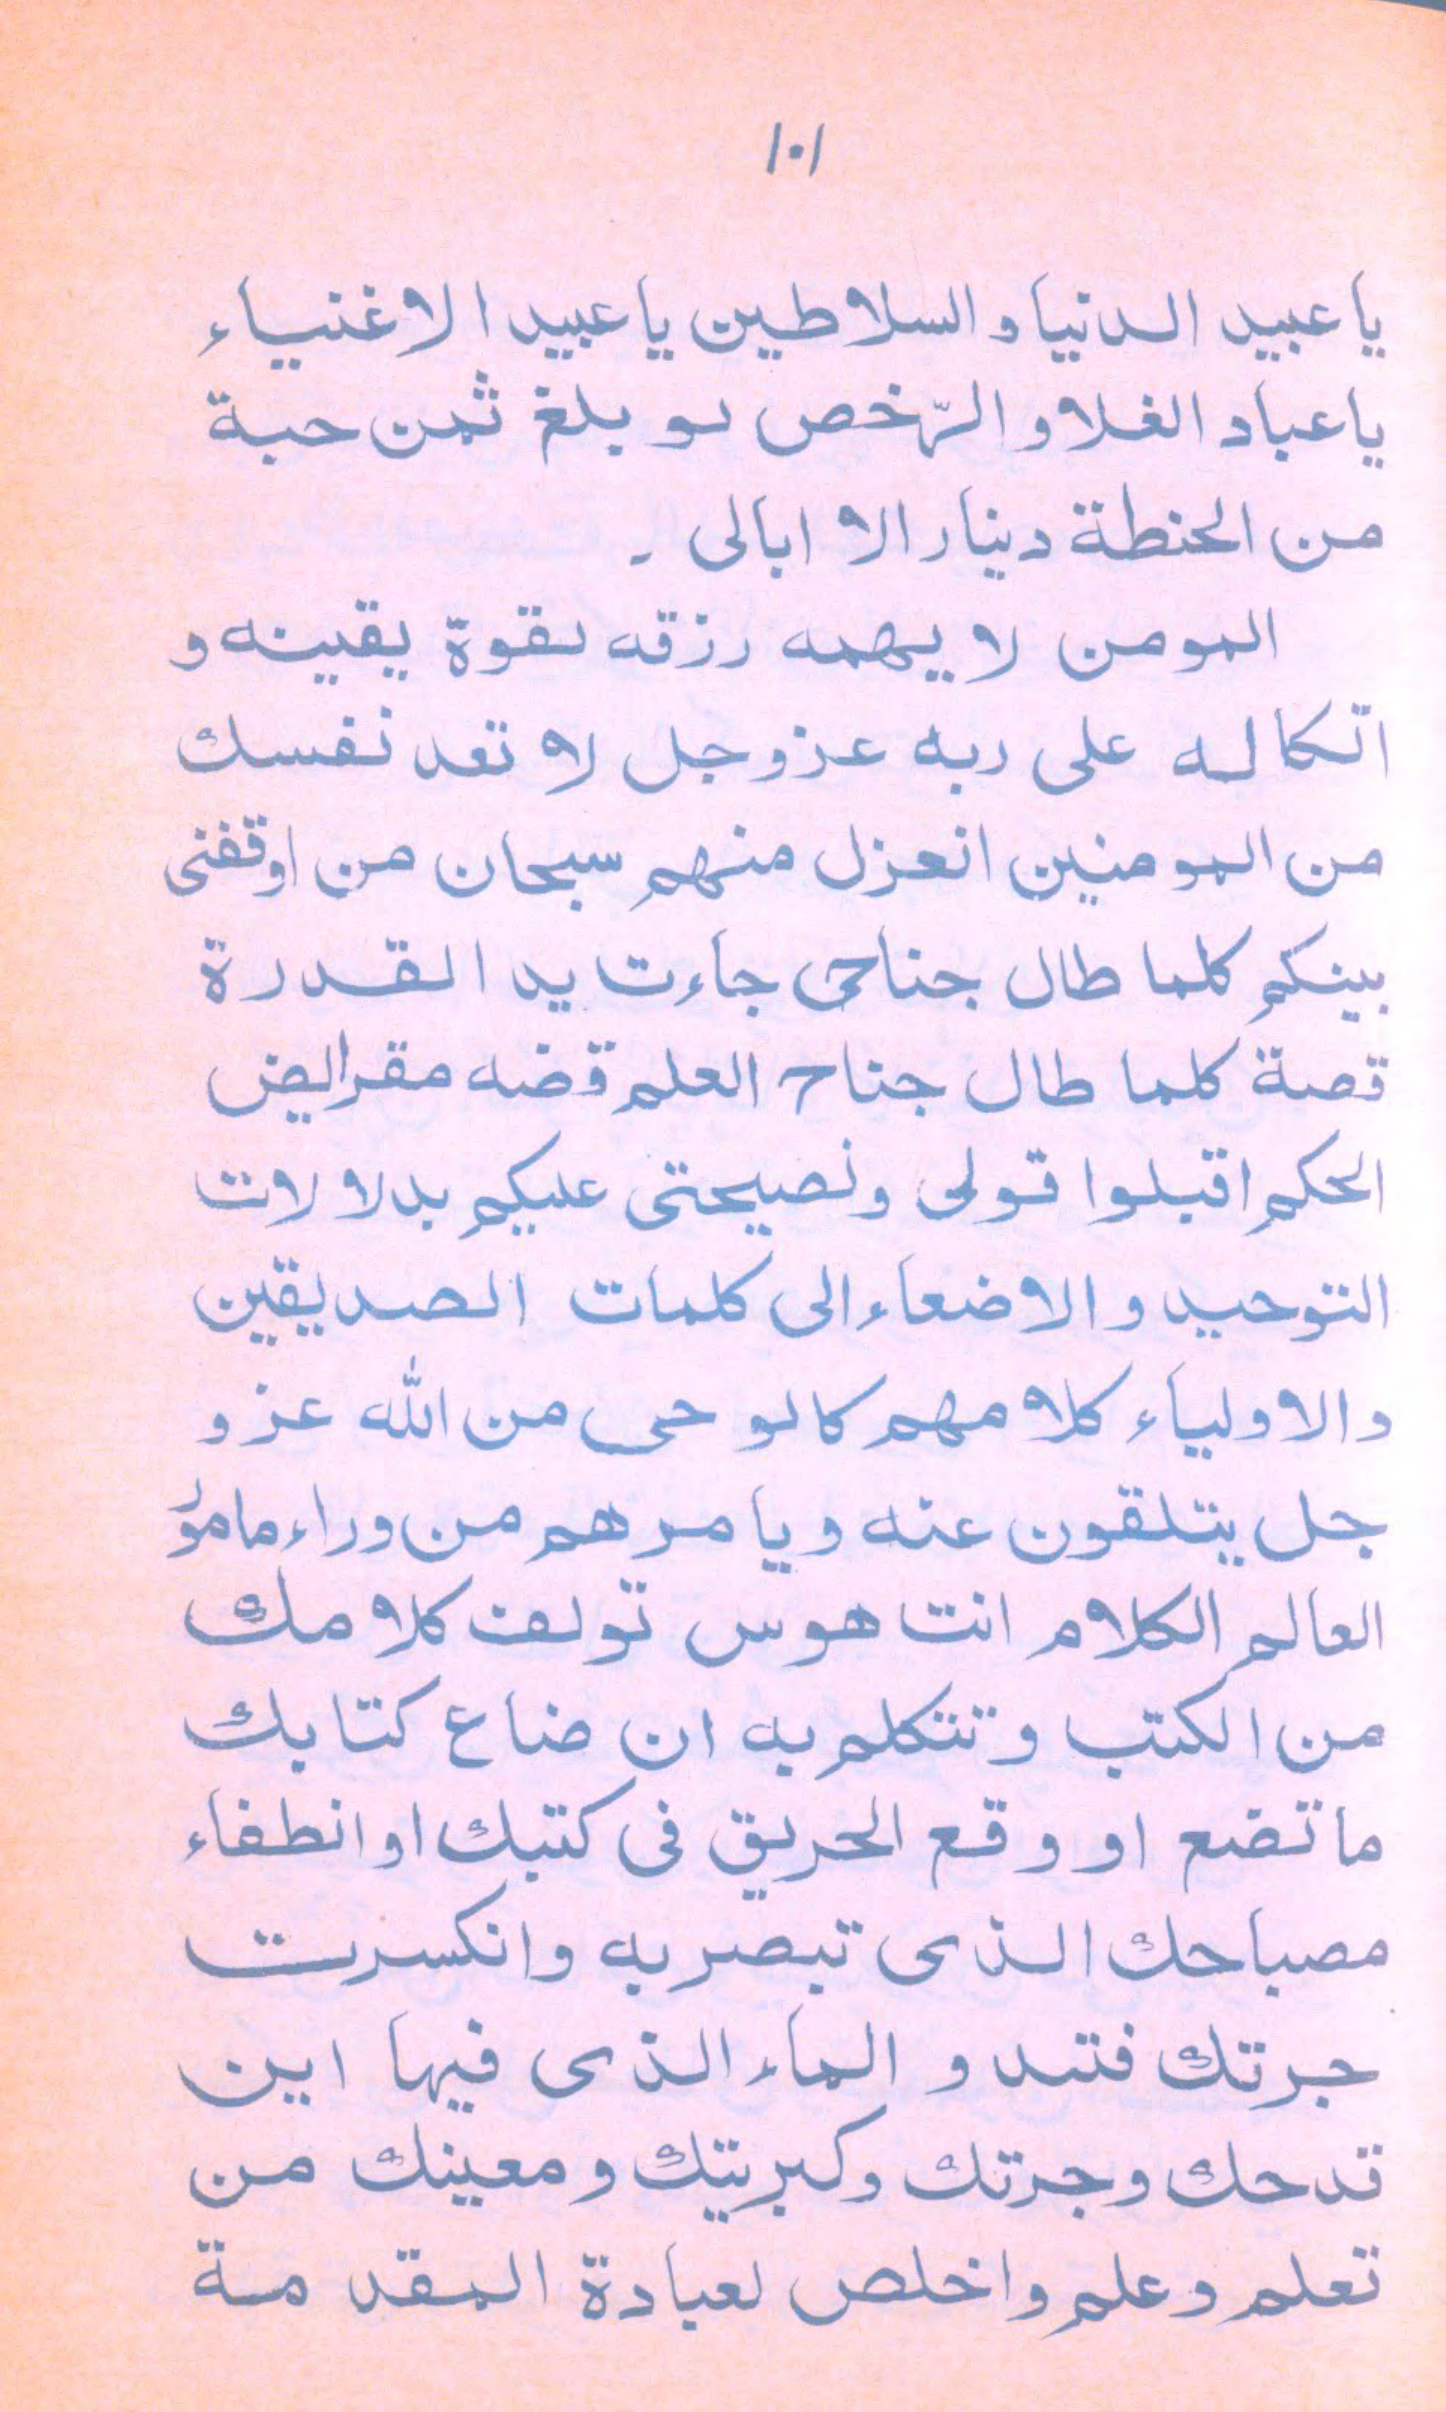 ١٠١
يا عبيد الدنيا و السلاطين يا عبيد الاغنياء
يا عباد الغلا و الرّخص لو بلغ ثمن حبة
من الحنطة دينار الا ابالى ۔
المومن لا يهمه رزقه لقوة يقينه و
اتكاله على ربه عزوجل لا تعد نفسك
من المومنين انعزل منهم سبحان من اوقفنى
بينكم كلما طال جناحى جاءت يد القدرة
قصة كلما طال جناح العلم قضه مقراليض
الحكم اقبلوا قولى ونصيحتى عليكم بدلالات
التوحيد و الاضعاء الى كلمات الصديقين
و الاولياء كلامهم كالوحى من الله عز و
جل يتلقون عنه و يا مرهم من وراء مامؤر
العالم الكلام انت هوس تولف كلامك
من الكتب و تتكلم به ان ضاع كتابك
ما تضع او وقع الحريق فى كتبك او انطفاء
مصباحك الذى تبصر به وانكسرت
جرتك فتبدو الماء الذى فيها اين
قدحك وجرتك وكبريتك و معينك من
تعلم و علم و اخلص لعبادة المقدمة